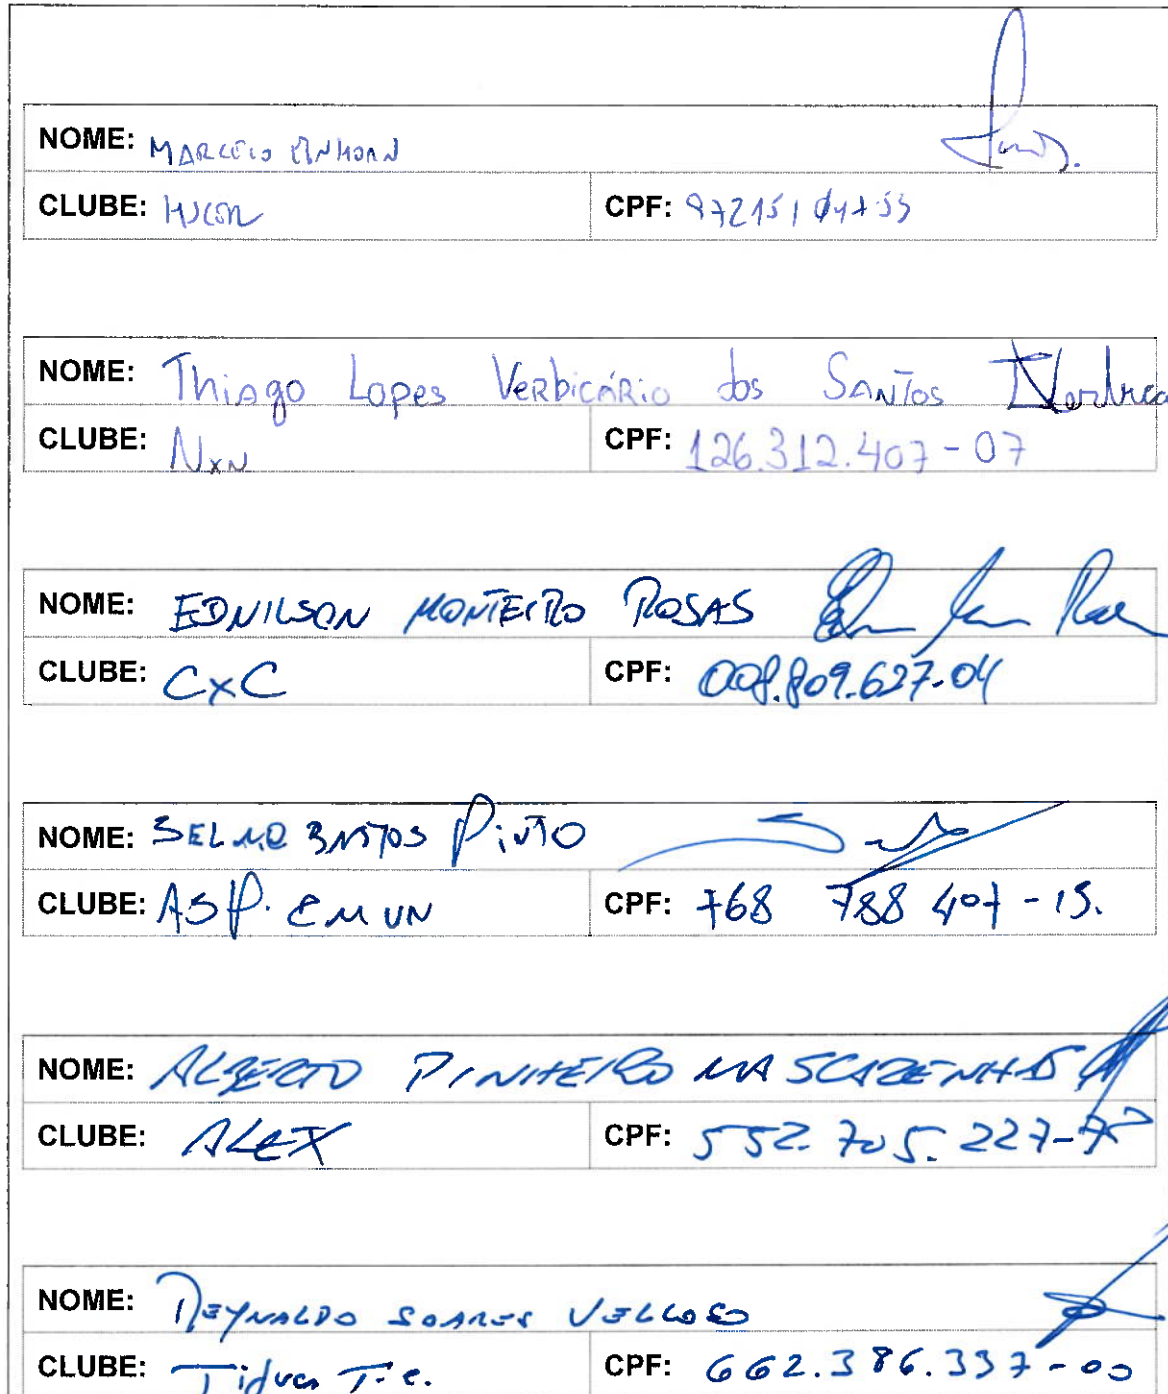 NOME: MARCELO EINHORN
CLUBE: CPF:
NOME: Thiago Lopes Verbicário dos Santos
CLUBE: NxN CPF: 126.312.407-07
NOME: EDNILSON MONTEIRO ROSAS
CLUBE: CxC CPF: 008.809.627-04
NOME: SELMO BASTOS PiNTO
CLUBE: CPF: 768 788 407-15.
NOME: ALBERTO PINHEIRO MASCARENHAS
CLUBE: ALEX CPF: 552.705.227-
NOME: REYNALDO SOARES VELLOSO
CLUBE: CPF: 662.386.337-00